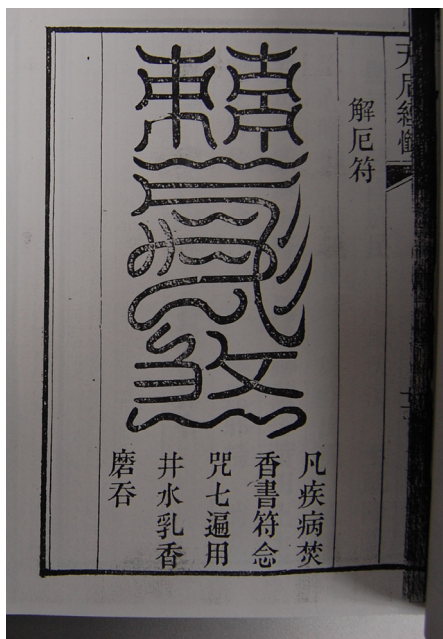 解厄符
凡疾病焚
香書符念
咒七遍用
井水乳香
磨吞